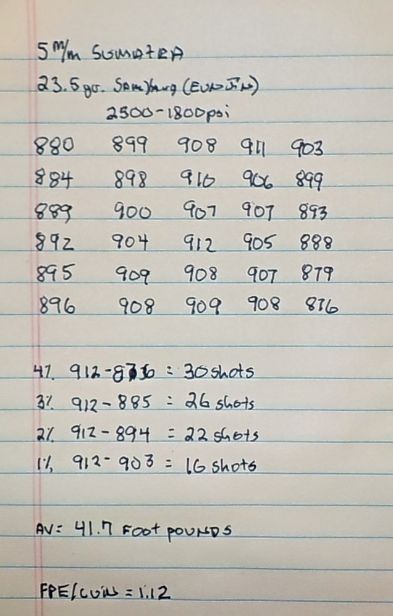 5 m/m SUMATRA
23.5 gr. Sam Yang (EUN JIN)
2500-1800psi
880 899 908 911 903
884 898 910 906 899
889 900 907 907 893
892 904 912 905 888
895 909 908 907 879
896 908 909 908 876
4% 912-876 = 30 shots
3% 912-885 = 26 shots
2% 912-894 = 22 shots
1% 912-903 = 16 shots
AV= 41.7 FOOT POUNDS
FPE/CUIN = 1.12